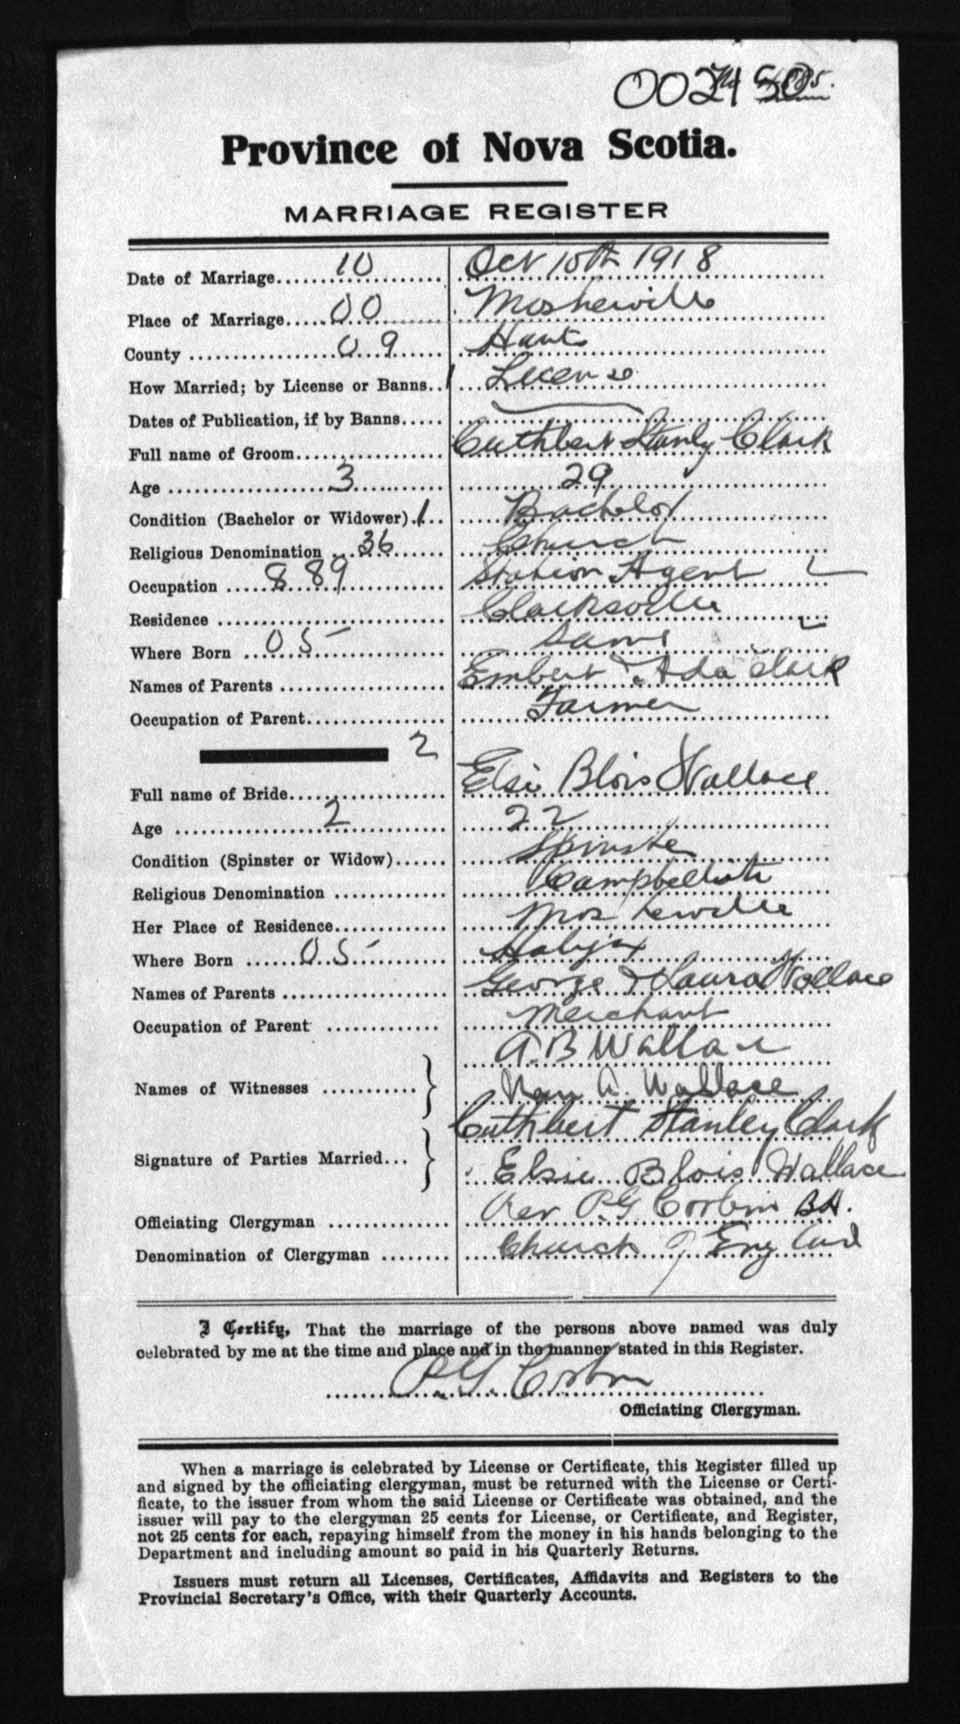 002450
Province of Nova Scotia.
MARRIAGE REGISTER
Date of Marriage 10 Oct 10th 1918
Place of Marriage 00 Mosherville
County 09 Hants
How Married; by License or Banns 1 License
Dates of Publication, if by Banns
Full name of Groom Cuthbert Stanly Clark
Age 3 29
Condition (Bachelor or Widower) 1 Bachelor
Religious Denomination 36 Church
Occupation 889 Station Agent
Residence Clarksville
Where Born 05 Same
Names of Parents Embert & Ada Clark
Occupation of Parent Farmer
2
Full name of Bride Elsi Blois Wallace
Age 2 22
Condition (Spinster or Widow) Spinster
Religious Denomination Campbellite
Her Place of Residence Mosherville
Where Born 05 Halifax
Names of Parents George & Laura Wallace
Occupation of Parent Merchant
A. B Wallace
Names of Witnesses } A. Wallace
Cuthbert Stanley Clark
Signature of Parties Married... }
Elsie Blois Wallace
Officiating Clergyman Rev P.G Corbin B.A.
Denomination of Clergyman Church of Eng
I Certify, That the marriage of the persons above named was duly
celebrated by me at the time and place and in the manner stated in this Register.
P. G. Corbin
Officiating Clergyman.
When a marriage is celebrated by License or Certificate, this Register filled up
and signed by the officiating clergyman, must be returned with the License or Certi-
ficate, to the issuer from whom the said License or Certificate was obtained, and the
issuer will pay to the clergyman 25 cents for License, or Certificate, and Register,
not 25 cents for each, repaying himself from the money in his hands belonging to the
Department and including amount so paid in his Quarterly Returns.
Issuers must return all Licenses, Certificates, Affidavits and Registers to the
Provincial Secretary's Office, with their Quarterly Accounts.